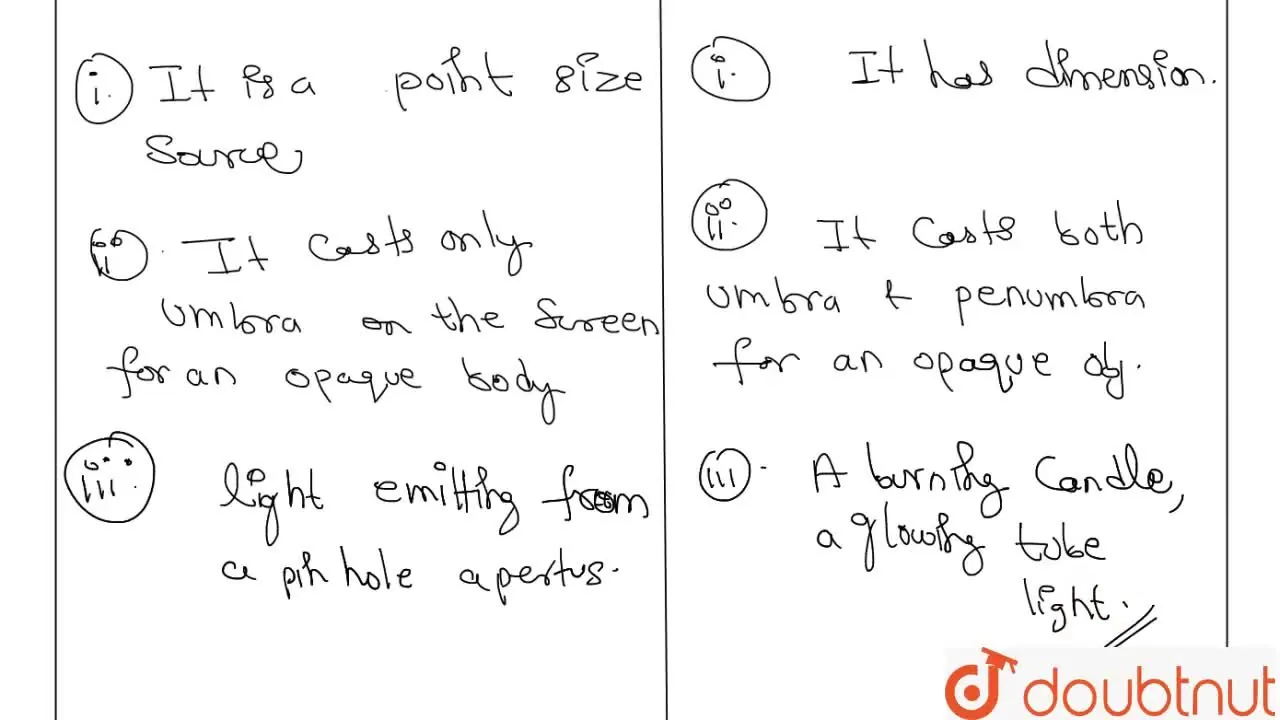 i. It is a point size
Source,
ii. It casts only
umbra on the Screen
for an opaque body
iii. light emitting from
a pin hole apertus.
i. It has dimension.
ii. It Casts both
umbra & penumbra
for an opaque obj.
iii. A burning Candle,
a glowing tube
light.
doubtnut